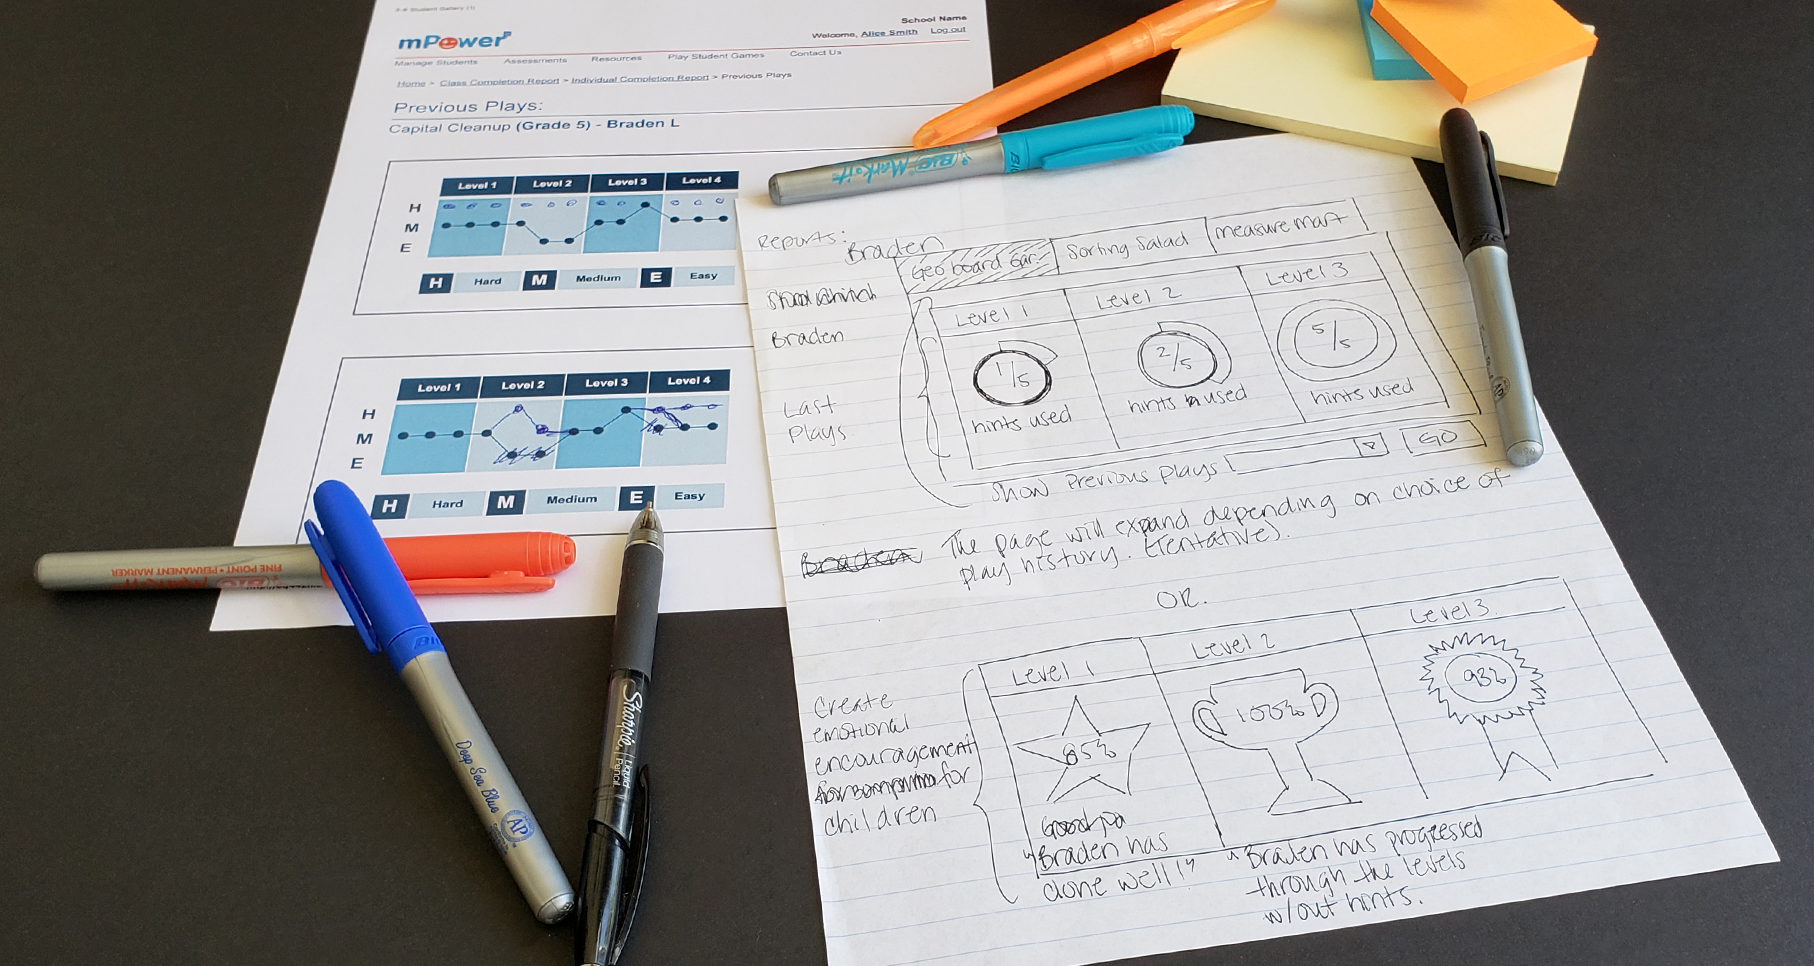 School Name
mPower
Welcome, Alice Smith Log out
Manage Students Assessments Resources Play Student Games Contact Us
Home > Class Completion Report > Individual Completion Report > Previous Plays
Previous Plays:
Capital Cleanup (Grade 5) - Braden L
Level 1 Level 2 Level 3 Level 4
H
M
E
H Hard M Medium E Easy
Level 1 Level 2 Level 3 Level 4
H
M
E
H Hard M Medium E Easy
BIC Mark-it
Reports:
Braden
Geoboard Gar. Sorting Salad Measure Mart
Braden
Last
Plays
Level 1 Level 2 Level 3
1/5 2/5 5/5
hints used hints used hints used
Show Previous Plays GO
Braden
The page will expand depending on choice of
play history. (Tentative).
OR.
Create
emotional
encouragement
for
children
Level 1 Level 2 Level 3
85% 100% 93%
"Braden has
done well!"
"Braden has progressed
through the levels
w/out hints.
FINE POINT • PERMANENT MARKER
BIC
Deep Sea Blue
AP
Sharpie. Liquid
Pencil